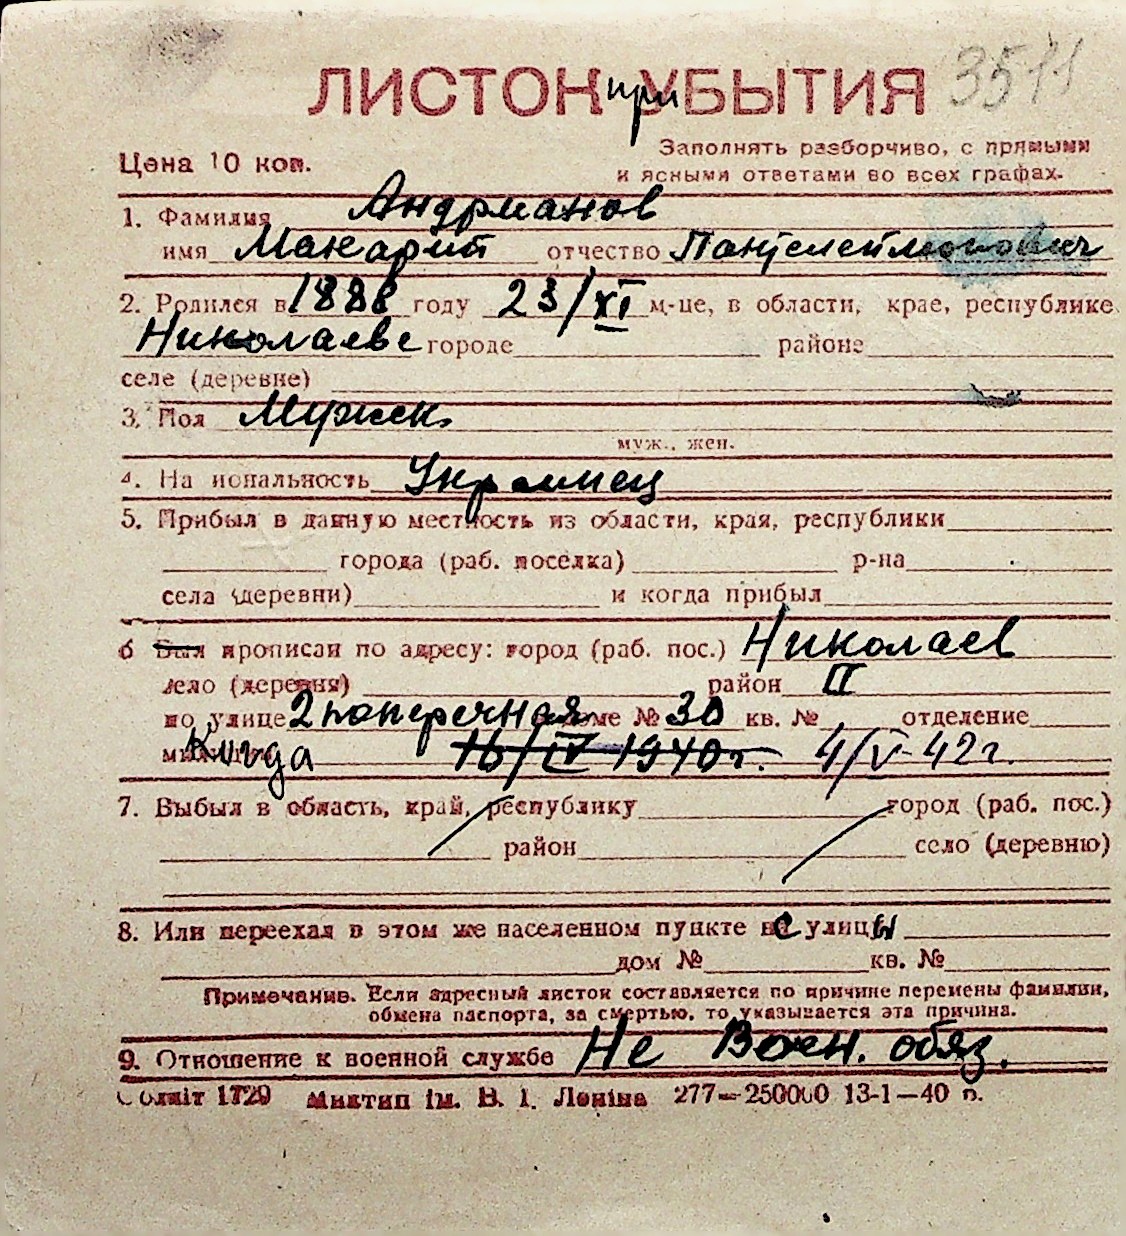 ЛИСТОК при УБЫТИЯ 3511
Цена 10 коп.
Заполнять разборчиво, с прямыми
и ясными ответами во всех графах.
1. Фамилия Андрманов
имя Макарий отчество Пантелеймонович
2. Родился в 1888 году 23/XI м-це, в области, крае, республике
Николаеве городе районе
селе (деревне)
3. Пол Мужск.
муж., жен.
4. На иональность Украинец
5. Прибыл в данную местность из области, края, республики
города (раб. поселка) р-на
села (деревни) и когда прибыл
6 Был прописан по адресу: город (раб. пос.) Николаев
село (деревня) район II
по улице 2 поперечная доме № 30 кв. № отделение
Когда 16/IV 1940 г. 4/V-42 г.
7. Выбыл в область, край, республику город (раб. пос.)
район село (деревню)
8. Или переехал в этом же населенном пункте с улицы
дом № кв. №
Примечание. Если адресный листок составляется по причине перемены фамилии,
обмена паспорта, за смертью, то указывается эта причина.
9. Отношение к военной службе Не Воен. обяз.
Облліт 1720 Миктип ім. В. І. Леніна 277—250000 13-1—40 п.